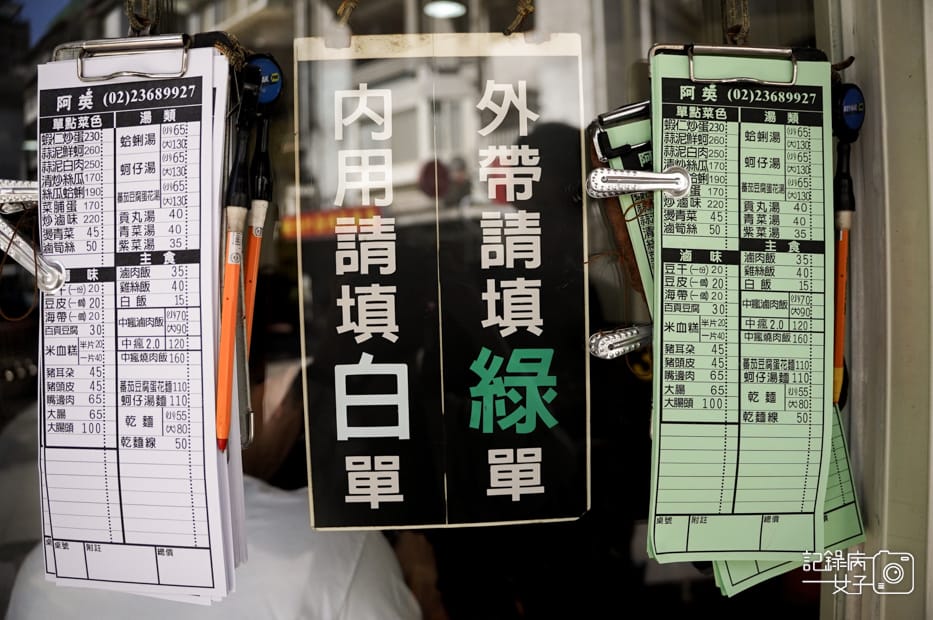 阿英 (02)23689927
單點菜色
蝦仁炒蛋 230
蒜泥鮮蚵 260
蒜泥白肉 250
清炒絲瓜 170
絲瓜蛤蜊 190
菜脯蛋 170
炒滷味 220
燙青菜 45
滷筍絲 50
滷味
豆干(一份) 20
豆皮(一個) 20
海帶(一個) 20
百頁豆腐 30
米血糕 半片20
一片40
豬耳朵 45
豬頭皮 45
嘴邊肉 65
大腸 65
大腸頭 100
湯類
蛤蜊湯 (小)65
(大)130
蚵仔湯 (小)65
(大)130
蕃茄豆腐蛋花湯 (小)65
(大)130
貢丸湯 40
青菜湯 40
紫菜湯 35
主食
滷肉飯 35
雞絲飯 40
白飯 15
中瘋滷肉飯 (小)70
(大)90
中瘋2.0 120
中瘋燒肉飯 160
蕃茄豆腐蛋花麵 110
蚵仔湯麵 110
乾麵 (小)55
(大)80
乾麵線 50
桌號
附註
總價
內用請填白單
外帶請填綠單
阿英 (02)23689927
單點菜色
蝦仁炒蛋 230
蒜泥鮮蚵 260
蒜泥白肉 250
清炒絲瓜 170
蛤蜊 190
蛋 170
炒滷味 220
燙青菜 45
滷筍絲 50
滷味
豆干(一份) 20
豆皮(一個) 20
海帶(一個) 20
百頁豆腐 30
米血糕 半片20
一片40
豬耳朵 45
豬頭皮 45
嘴邊肉 65
大腸 65
大腸頭 100
湯類
蛤蜊湯 (小)65
(大)130
蚵仔湯 (小)65
(大)130
蕃茄豆腐蛋花湯 (小)65
(大)130
貢丸湯 40
青菜湯 40
紫菜湯 35
主食
滷肉飯 35
雞絲飯 40
白飯 15
中瘋滷肉飯 (小)70
(大)90
中瘋2.0 120
中瘋燒肉飯 160
蕃茄豆腐蛋花麵 110
蚵仔湯麵 110
乾麵 (小)55
(大)80
乾麵線 50
桌號
附註
總價
記錄病
女子